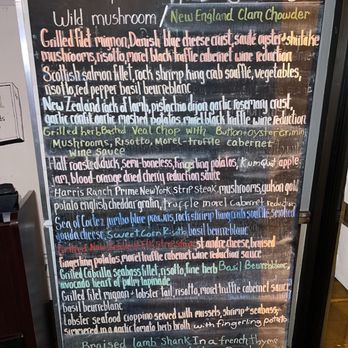 Wild mushroom / New England Clam Chowder
Grilled filet mignon, Danish blue cheese crust, sauté oyster + shiitake
mushrooms, risotto, morel black truffle cabernet wine reduction
Scottish salmon fillet, rock shrimp king crab soufflé, vegetables,
risotto, red pepper basil beurreblanc
New Zealand rack of lamb, pistachio dijon garlic rosemary crust,
garlic confit garlic mashed potatos, morel black truffle cabernet wine reduction
Grilled herb, Basted Veal Chop with Button + oyster + crimini
Mushrooms, Risotto, Morel-truffle cabernet
wine sauce
Half roasted duck, semi-boneless, fingerling potatos, Kumquat apple
jam, blood-orange dried cherry reduction sauce
Harris Ranch Prime New York strip steak, mushrooms, yukon gold
potato english cheddar gratin, truffle morel cabernet reduction
Sea of Cortez jumbo blue prawns, rock shrimp king crab soufflé, smoked
gouda cheese, sweet corn risotto, basil beurreblanc
strip steak st. andre cheese, braised
fingerling potatos, morel truffle cabernet wine reduction sauce
Grilled Cabrilla seabass fillet, risotto, fine herb Basil Beurreblanc,
avocado heart of palm tapenade
Grilled filet mignon + lobster tail, risotto, morel truffle cabernet sauce,
basil beurreblanc
Lobster seafood cioppino served with mussels, shrimp + seabass,
simmered in a garlic tomato herb broth with fingerling potato
Braised lamb shank In a french thyme